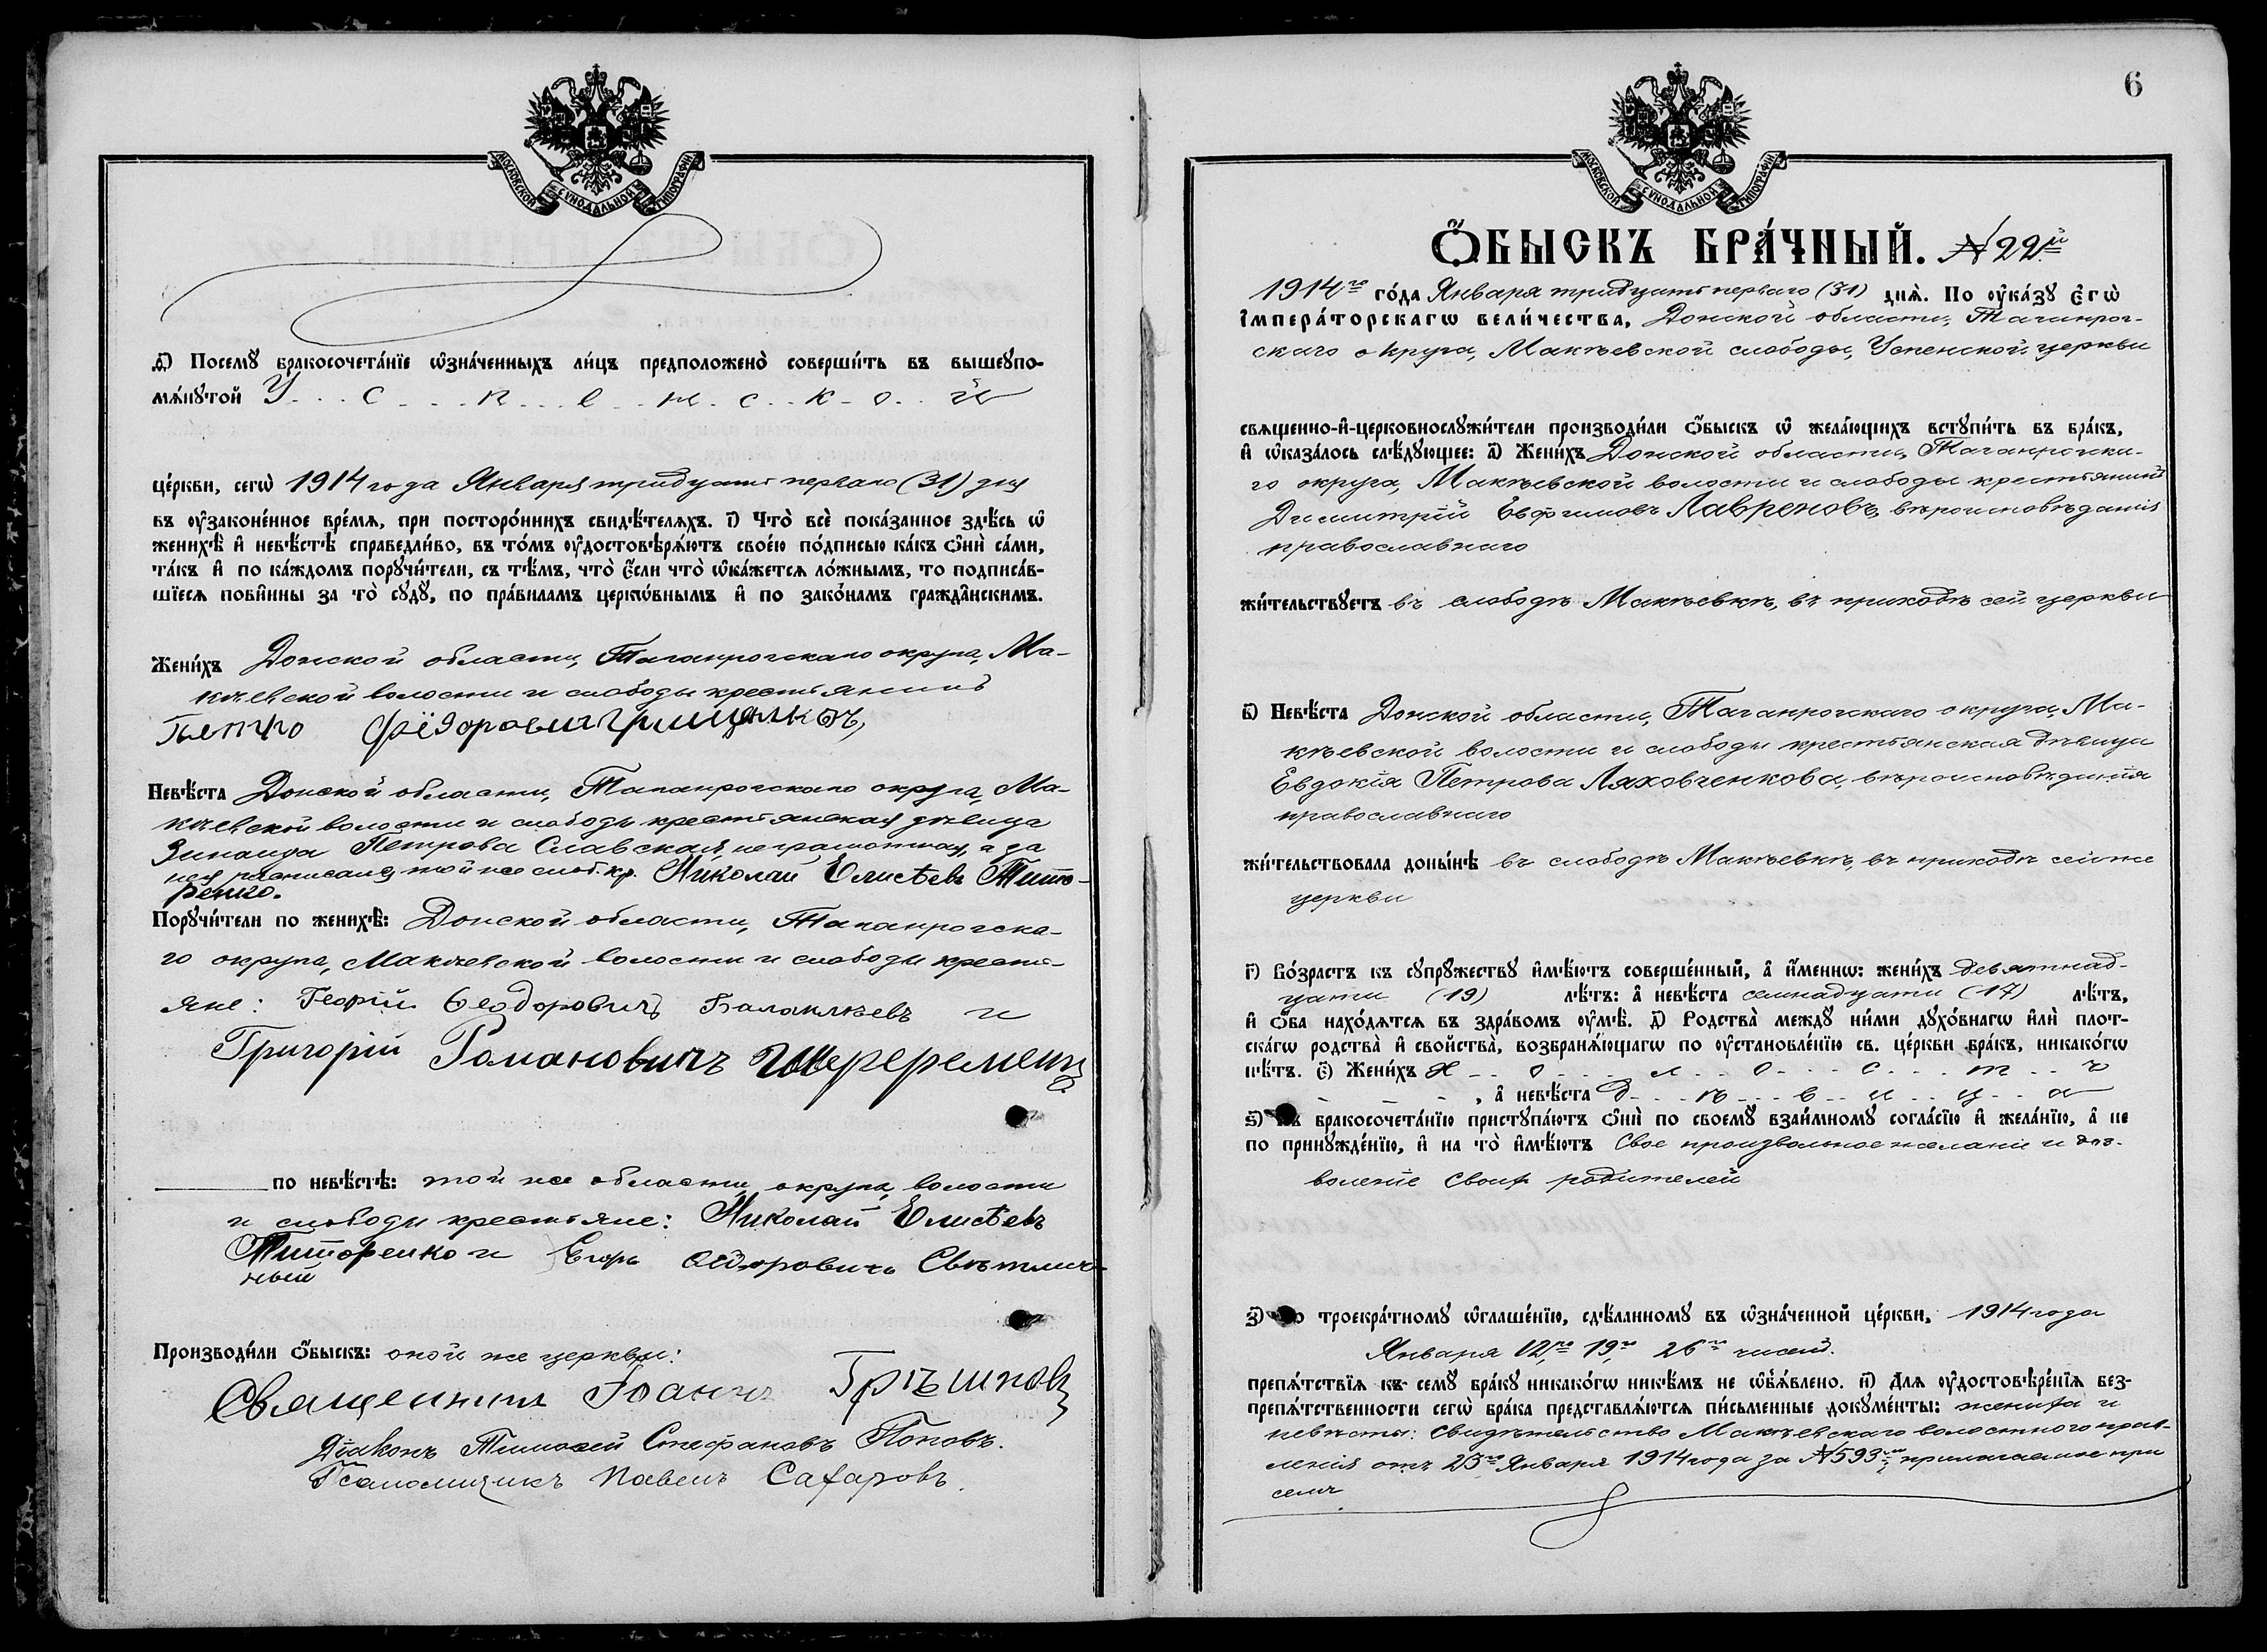 МОСКОВСКОЙ СУНОДАЛЬНОЙ ТИПОГРАФІИ
д҃) Посемꙋ бракосочета́нїе ѡзна́ченныхъ ли́цъ предположено̀ соверши́ть въ вышеꙋпо-
мѧ́нꙋтой У...с...п...е...н...с...к...о...й
це́ркви, сегѡ̀ 1914 года Января тридцать перваго (31) дня
въ ᲂу҆законе́нное вре́мѧ, при посторо́ннихъ свидѣ́телѧхъ. і҃) Что̀ всѐ пока́занное здѣ́сь ѡ҆
женихѣ̀ и҆ невѣ́стѣ справедли́во, въ то́мъ ᲂу҆достовѣрѧ́ютъ свое́ю по́дписью ка́къ ѻ҆нѝ са́ми,
та́къ и҆ по ка́ждомъ порꙋчи́тели, съ тѣ́мъ, что̀ є҆́сли что̀ ѡ҆ка́жетсѧ ло́жнымъ, то подписа́в-
шїесѧ пови́нны за то̀ сꙋдꙋ̀, по пра́виламъ церко́внымъ и҆ по зако́намъ гражда́нскимъ.
Жени́хъ Донской области, Таганрогскаго округа, Ма-
кѣевской волости и слободы крестьянинъ
Петро Фёдорович
Невѣ́ста Донской области, Таганрогскаго округа, Ма-
кѣевской волости и слободы крестьянская дѣвица
Зинаида Петрова Славская, неграмотная, а за
нея расписался той же слоб. кр. Николай Елисѣевъ Тито-
ренко.
Порꙋчи́тели по женихѣ̀: Донской области, Таганрогска-
го округа, Макѣевской волости и слободы кресть-
яне: Георгій Ѳеодоровичъ Балаклѣевъ и
Григорій Романовичъ
по невѣ́стѣ: той же области, округа, волости
и слободы крестьяне: Николай Елисѣевъ
Титоренко и Егоръ Ѳёдоровичъ Свѣтлич-
ный
Производи́ли ѻ҆́быскъ: оной же церкви:
Священникъ Іоаннъ Грѣшновъ
Діаконъ Тимоѳей Стефановъ Поповъ.
Псаломщикъ Павелъ Сахаровъ.
6
МОСКОВСКОЙ СУНОДАЛЬНОЙ ТИПОГРАФІИ
Ѻ҆БЫСКЪ БРА́ЧНЫЙ. №22й
1914го го́да Января тридцать перваго (31) днѧ̀. По ᲂу҆ка́зꙋ є҆гѡ̀
и҆мпера́торскагѡ вели́чества, Донской области, Таганрог-
скаго округа, Макѣевской слободы, Успенской церкви
свѧщенно-и҆-церковнослꙋжи́тели производи́ли ѻ҆́быскъ ѡ҆ жела́ющихъ встꙋпи́ть въ бра́къ,
и҆ ѡ҆каза́лось слѣ́дꙋющее: а҃) Жени́хъ Донской области, Таганрогска-
го округа, Макѣевской волости и слободы крестьянинъ
Димитрій Евфимовъ Лавреновъ, вѣроисповѣданія
православнаго
жи́тельствꙋетъ въ слободѣ Макѣевкѣ, въ приходѣ сей церкви
в҃) Невѣ́ста Донской области, Таганрогскаго округа, Ма-
кѣевской волости и слободы крестьянская дѣвица
Евдокія Петрова Ляховченкова, вѣроисповѣданія
православнаго
жи́тельствовала доны́нѣ въ слободѣ Макѣевкѣ, въ приходѣ сей же
церкви
г҃) Во́зрастъ къ сꙋпрꙋ́жествꙋ и҆мѣ́ютъ соверше́нный, а҆ и҆́менно: жени́хъ девятнад-
цати (19) лѣ́тъ: а҆ невѣ́ста семнадцати (17) лѣ́тъ,
и҆ ѻ҆́ба нахо́дѧтсѧ въ здра́вомъ ᲂу҆мѣ̀. д҃) Родства̀ междꙋ ни́ми дꙋхо́внагѡ и҆лѝ плот-
ска́гѡ родства̀ и҆ свойства̀, возбранѧ́ющагѡ по ᲂу҆становле́нїю св. це́ркви бра́къ, никако́гѡ
нѣ́тъ. є҃) Жени́хъ х...о...л...о...с...т...ъ
, а҆ невѣ́ста д...ѣ...в...и...ц...а
ѕ҃) бракосочета́нїю пристꙋпа́ютъ ѻ҆нѝ по своемꙋ̀ взаи́мномꙋ согла́сїю и҆ жела́нїю, а҆ не
по принꙋжде́нїю, и҆ на то̀ и҆мѣ́ютъ свое произвольное желаніе и доз-
воленіе своихъ родителей
з҃) троекра́тномꙋ ѡ҆глаше́нїю, сдѣ́ланномꙋ въ ѡ҆зна́ченной це́ркви, 1914 года
Января 12го, 19го, 26го чиселъ.
препѧ́тствїѧ къ семꙋ̀ бра́кꙋ никако́гѡ никѣ́мъ не ѡ҆б̾ѧ́влено. и҃) Длѧ ᲂу҆достовѣре́нїѧ без-
препѧ́тственности сегѡ̀ бра́ка представлѧ́ютсѧ пи́сьменные докꙋме́нты: жениха и
невѣсты: Свидѣтельство Макѣевскаго волостного прав-
ленія отъ 25го Января 1914 года за №593м прилагаемое при
семъ.